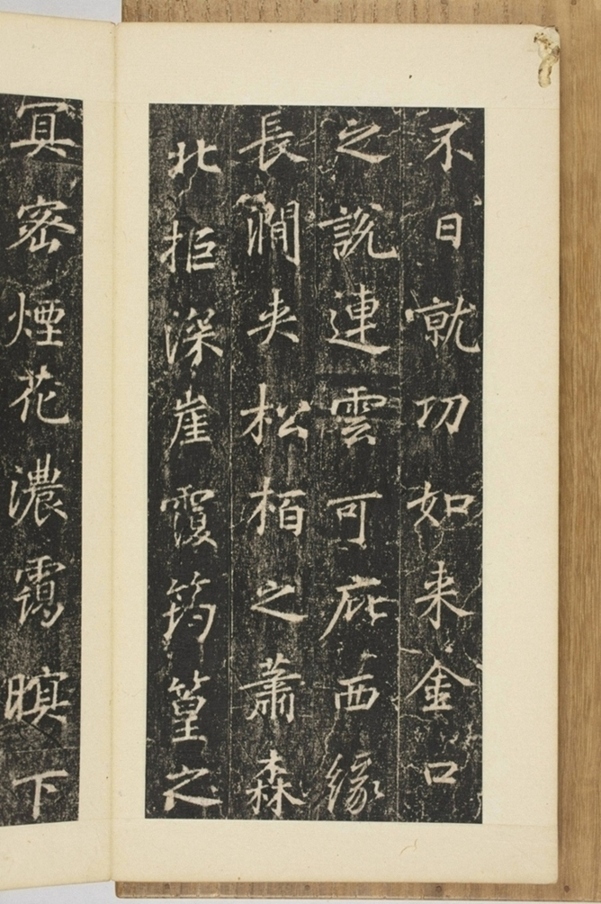 不日就功如来金口
之說連雲可庇西緣
長澗夾松栢之蕭森
北拒深崖覆筠篁之
冥密煙花濃靄暝下